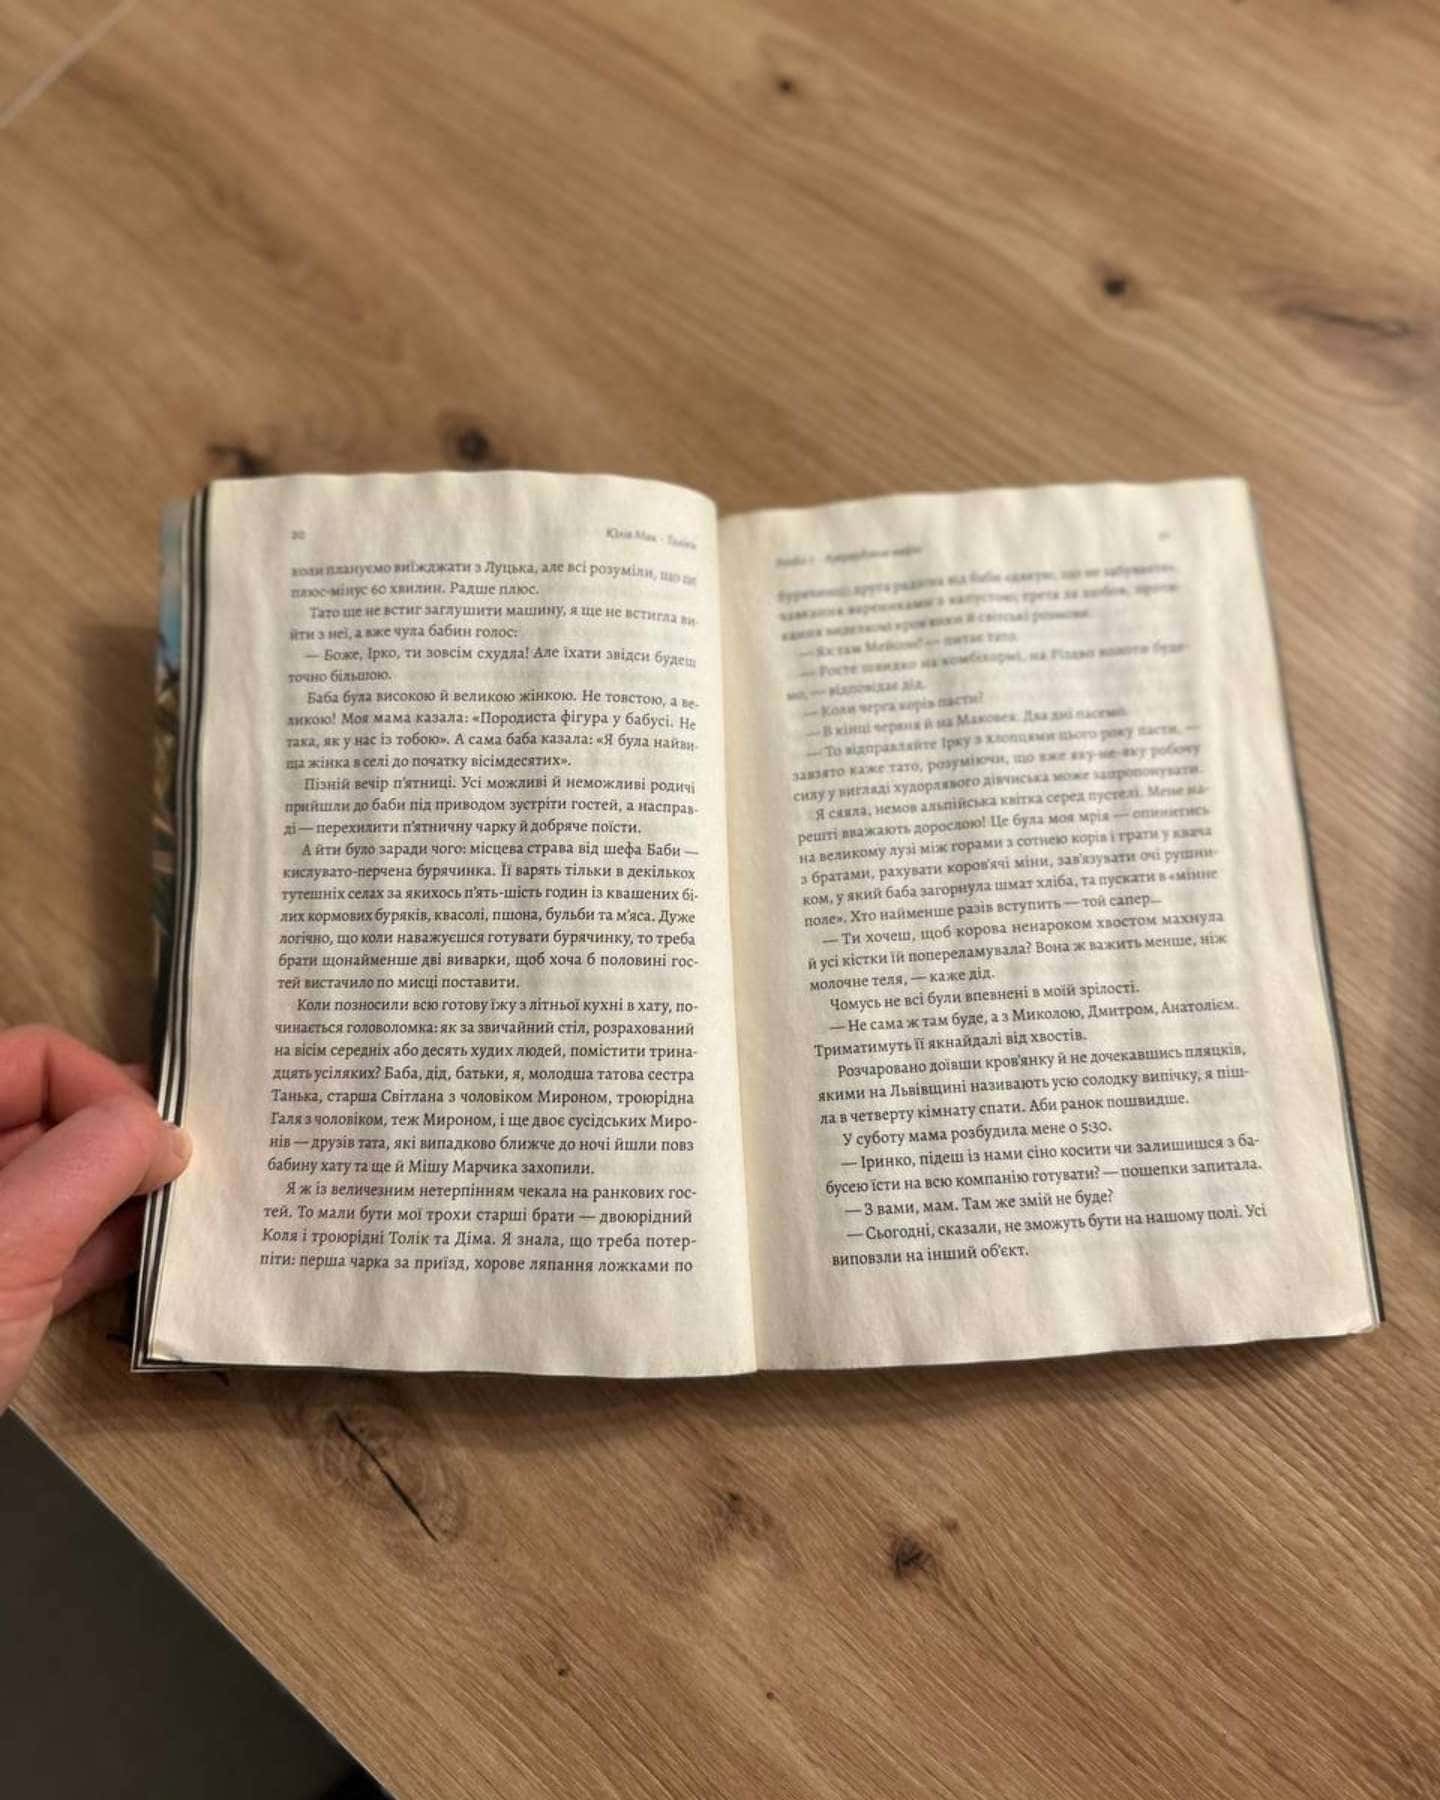 20
Юлія Мак ·
коли плануємо виїжджати з Луцька, але всі розуміли, що це
плюс-мінус 60 хвилин. Радше плюс.
Тато ще не встиг заглушити машину, я ще не встигла ви-
йти з неї, а вже чула бабин голос:
— Боже, Ірко, ти зовсім схудла! Але їхати звідси будеш
точно більшою.
Баба була високою й великою жінкою. Не товстою, а ве-
ликою! Моя мама казала: «Породиста фігура у бабусі. Не
така, як у нас із тобою». А сама баба казала: «Я була найви-
ща жінка в селі до початку вісімдесятих».
Пізній вечір п'ятниці. Усі можливі й неможливі родичі
прийшли до баби під приводом зустріти гостей, а насправ-
ді — перехилити п'ятничну чарку й добряче поїсти.
А йти було заради чого: місцева страва від шефа Баби —
кислувато-перчена бурячинка. Її варять тільки в декількох
тутешніх селах за якихось п'ять-шість годин із квашених бі-
лих кормових буряків, квасолі, пшона, бульби та м'яса. Дуже
логічно, що коли наважуєшся готувати бурячинку, то треба
брати щонайменше дві виварки, щоб хоча б половині гос-
тей вистачило по мисці поставити.
Коли позносили всю готову їжу з літньої кухні в хату, по-
чинається головоломка: як за звичайний стіл, розрахований
на вісім середніх або десять худих людей, помістити трина-
дцять усіляких? Баба, дід, батьки, я, молодша татова сестра
Танька, старша Світлана з чоловіком Мироном, троюрідна
Галя з чоловіком, теж Мироном, і ще двоє сусідських Миро-
нів — друзів тата, які випадково ближче до ночі йшли повз
бабину хату та ще й Мішу Марчика захопили.
Я ж із величезним нетерпінням чекала на ранкових гос-
тей. То мали бути мої трохи старші брати — двоюрідний
Коля і троюрідні Толік та Діма. Я знала, що треба потер-
піти: перша чарка за приїзд, хорове ляпання ложками по
бурячинці; друга радісна від баби «дякую, що не забуваєте»,
чавкання варениками з капустою; третя за любов,
й світські розмови.
— Як там Мейсон? — питає тато.
— Росте швидко на комбікормі, на Різдво колоти буде-
мо, — відповідає дід.
— Коли черга корів пасти?
— В кінці червня й на Маковея. Два дні пасемо.
— То відправляйте Ірку з хлопцями цього року пасти, —
завзято каже тато, розуміючи, що вже яку-не-яку робочу
силу у вигляді худорлявого дівчиська може запропонувати.
Я сяяла, немов альпійська квітка серед пустелі. Мене на-
решті вважають дорослою! Це була моя мрія — опинитись
на великому лузі між горами з сотнею корів і грати у квача
з братами, рахувати коров'ячі міни, зав'язувати очі рушни-
ком, у який баба загорнула шмат хліба, та пускати в «мінне
поле». Хто найменше разів вступить — той сапер...
— Ти хочеш, щоб корова ненароком хвостом махнула
й усі кістки їй попереламувала? Вона ж важить менше, ніж
молочне теля, — каже дід.
Чомусь не всі були впевнені в моїй зрілості.
— Не сама ж там буде, а з Миколою, Дмитром, Анатолієм.
Триматимуть її якнайдалі від хвостів.
Розчаровано доївши кров'янку й не дочекавшись пляцків,
якими на Львівщині називають усю солодку випічку, я піш-
ла в четверту кімнату спати. Аби ранок пошвидше.
У суботу мама розбудила мене о 5:30.
— Іринко, підеш із нами сіно косити чи залишишся з ба-
бусею їсти на всю компанію готувати? — пошепки запитала.
— З вами, мам. Там же змій не буде?
— Сьогодні, сказали, не зможуть бути на нашому полі. Усі
виповзли на інший об'єкт.